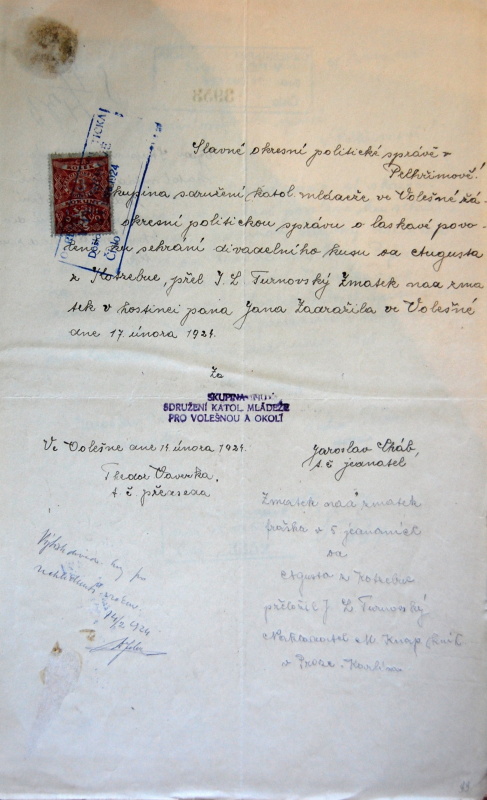 3958
Slavné okresní politické správě v
Pelhřimově!
Skupina sdružení katol. mládeže ve Volešné žá-
okresní politickou správu o laskavé povo-
lení ku sehrání divadelního kusu od Augusta
z Kotzebue, přel J. L Turnovský Zmatek nad zma
tek v hostinci pana Jana Zadražila ve Volešné
dne 17. února 1924.
Za
SKUPINA
SDRUŽENÍ KATOL. MLÁDEŽE
PRO VOLEŠNOU A OKOLÍ
Ve Volešné dne 14. února 1924.
Jaroslav
t. č. jednatel
Theodor Vaverka,
t. č. předseda
Zmatek nad zmatek
fraška v 5 jednáních
od
Augusta z Kotzebue
přeložil J. L Turnovský
Nakladatel M. Knapp
v Praze - Karlín
14/2 1924